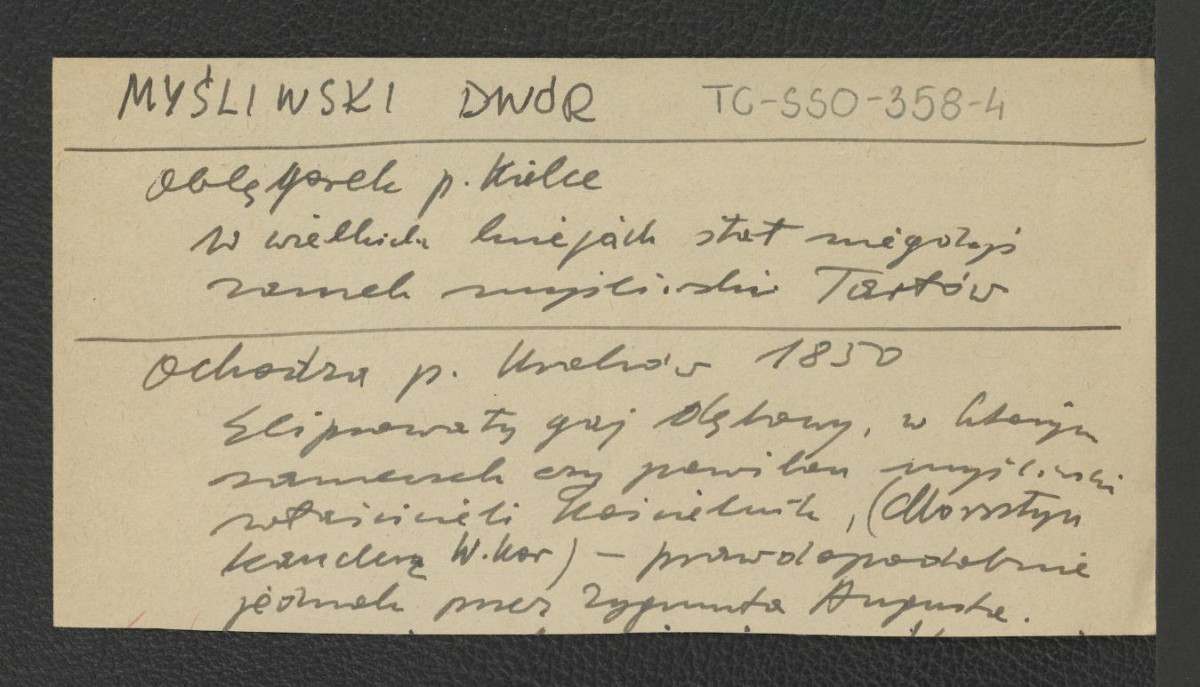 MYŚLIWSKI DWÓR TG-SSO-358-4
Oblęgorek p. Kielce
w wielkich kniejach stał niegdyś
zamek myśliwski Tarłów
Ochodza p. Kraków 1850
Elipsowaty gaj dębowy, w którym
zameczek czy pawilon myśliwski
właścicieli Kościelnik, (Morsztyn
kanclerz W. Kor) – prawdopodobnie
jednak przez Zygmunta Augusta.